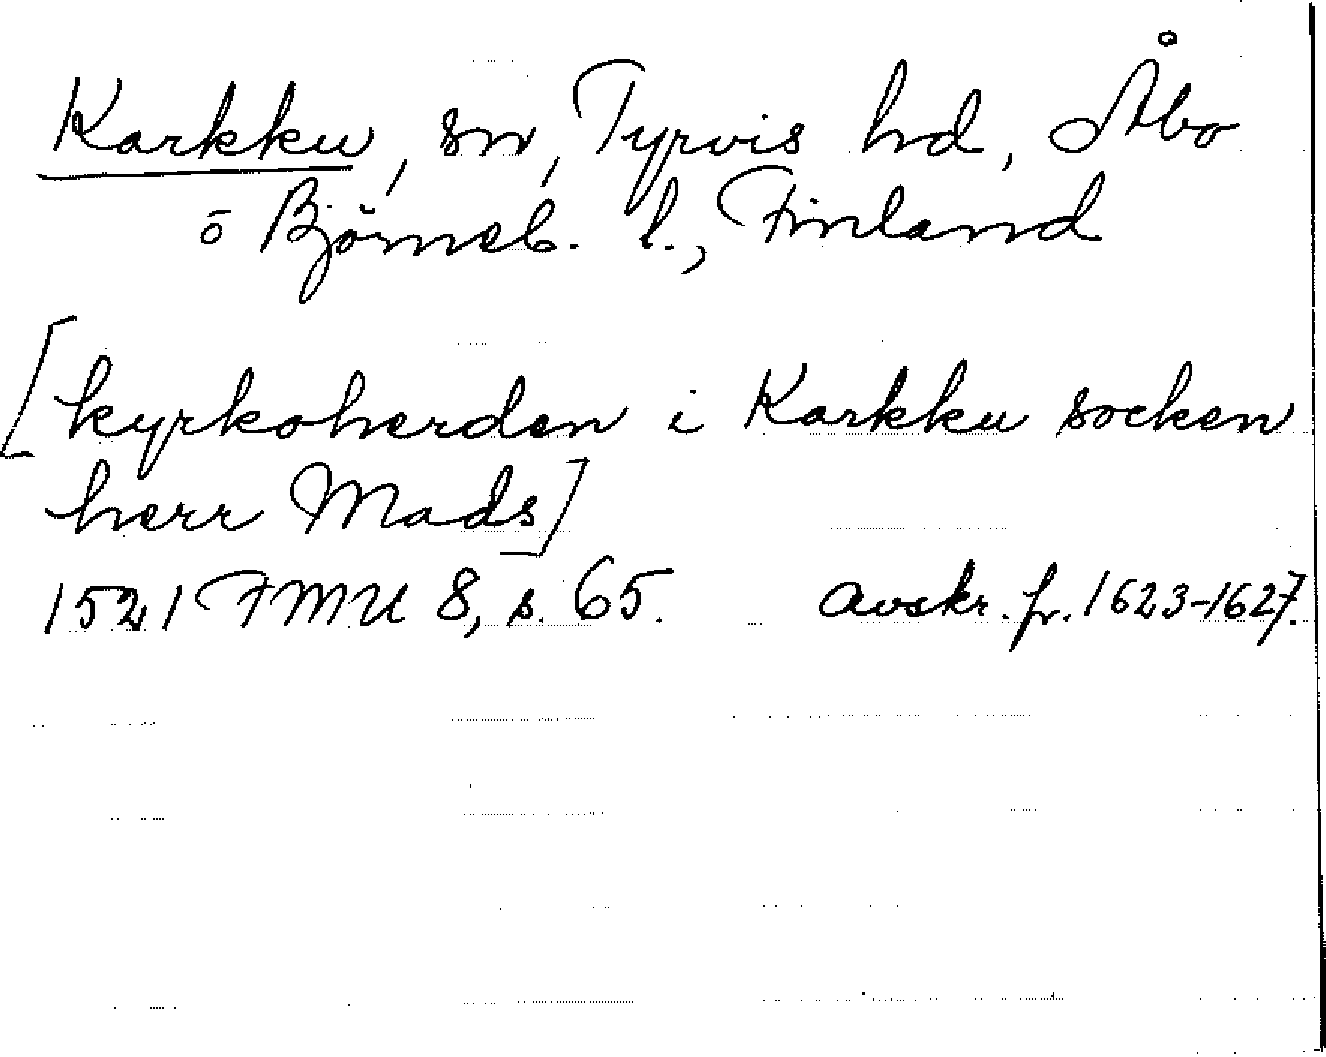 Karkku, sn, Tyrvis hd, Åbo
o Björneb. l., Finland
[kyrkoherden i Karkku socken
herr Mads]
1521 FMU 8, s. 65. avskr. fr. 1623-1627.